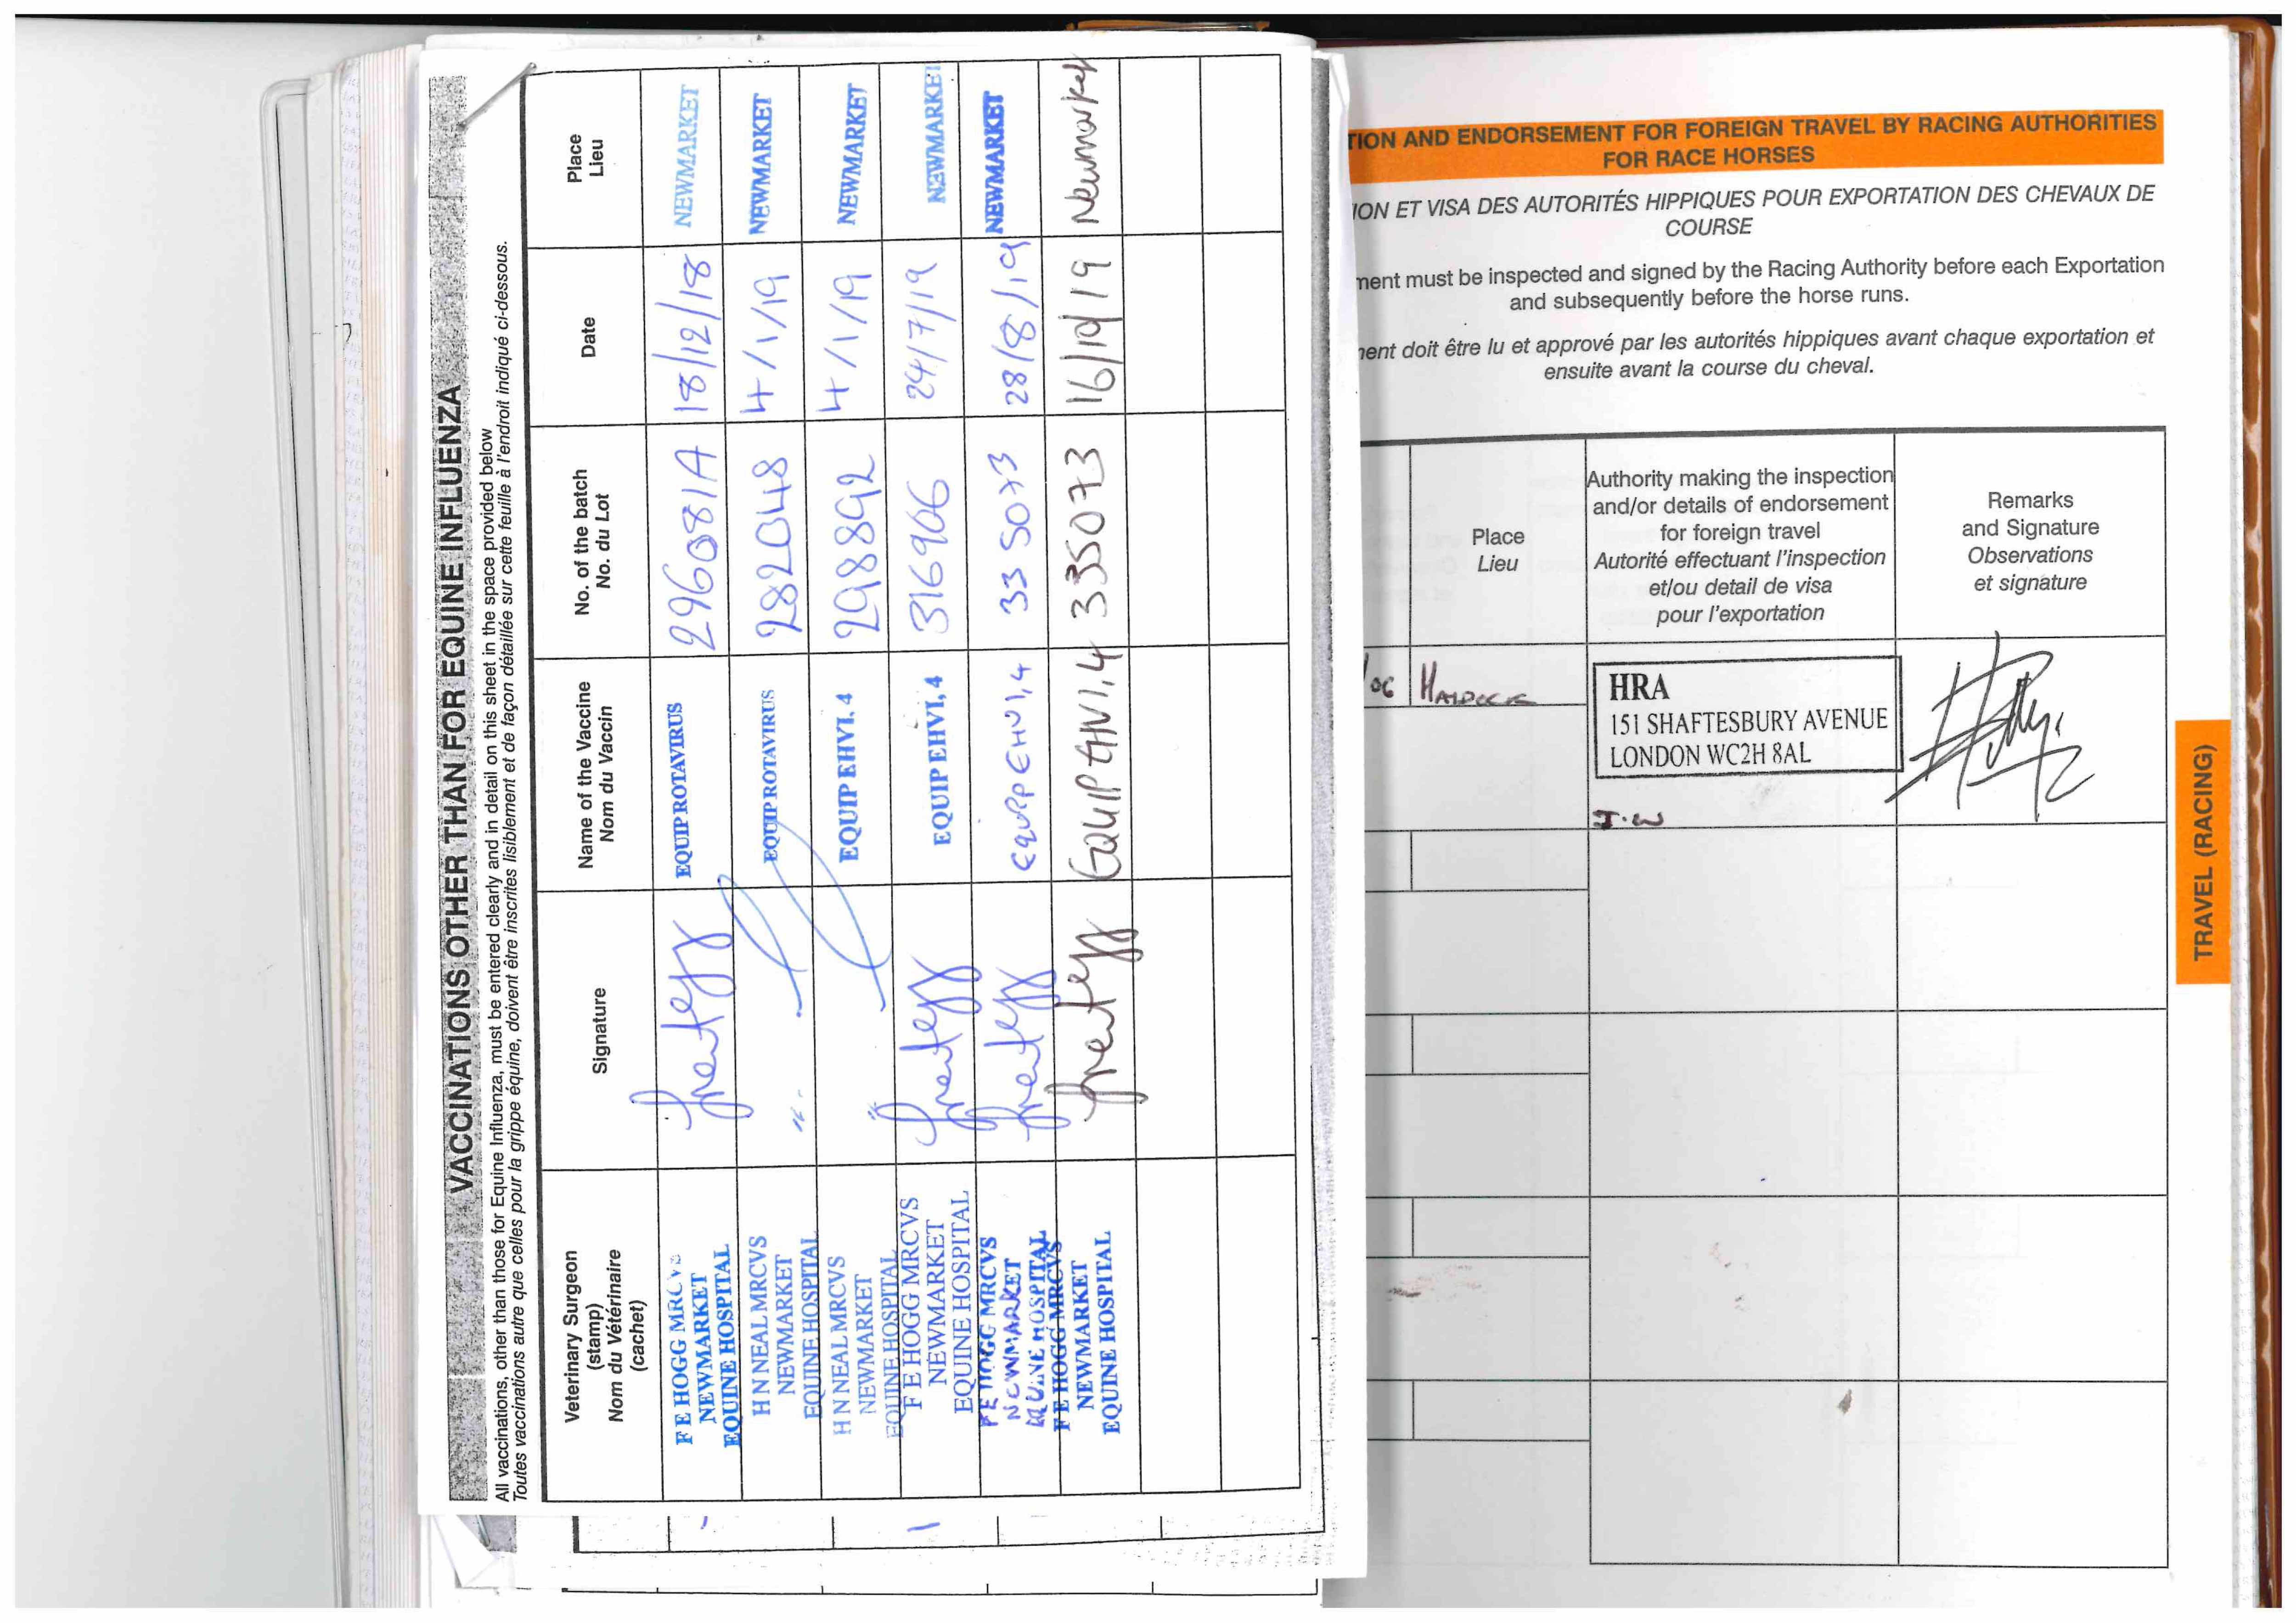 VACCINATIONS OTHER THAN FOR EQUINE INFLUENZA
All vaccinations, other than those for Equine Influenza, must be entered clearly and in detail on this sheet in the space provided below
Toutes vaccinations autre que celles pour la grippe équine, doivent être inscrites lisiblement et de façon détaillée sur cette feuille à l'endroit indiqué ci-dessous.
Veterinary Surgeon
(stamp)
Nom du Vétérinaire
(cachet)
Signature
Name of the Vaccine
Nom du Vaccin
No. of the batch
No. du Lot
Date
Place
Lieu
F E HOGG MRCVS
NEWMARKET
EQUINE HOSPITAL
EQUIP ROTAVIRUS
296081A
18/12/18
NEWMARKET
H N NEAL MRCVS
NEWMARKET
EQUINE HOSPITAL
EQUIP ROTAVIRUS
282048
4/1/19
NEWMARKET
H N NEAL MRCVS
NEWMARKET
EQUINE HOSPITAL
EQUIP EHV1, 4
298892
4/1/19
NEWMARKET
F E HOGG MRCVS
NEWMARKET
EQUINE HOSPITAL
EQUIP EHV1, 4
316906
24/7/19
NEWMARKET
F E HOGG MRCVS
NEWMARKET
EQUINE HOSPITAL
EQUIP EHV1,4
335073
28/8/19
NEWMARKET
F E HOGG MRCVS
NEWMARKET
EQUINE HOSPITAL
EQUIP EHV1,4
335073
16/10/19
Newmarket
TION AND ENDORSEMENT FOR FOREIGN TRAVEL BY RACING AUTHORITIES
FOR RACE HORSES
ION ET VISA DES AUTORITÉS HIPPIQUES POUR EXPORTATION DES CHEVAUX DE
COURSE
ment must be inspected and signed by the Racing Authority before each Exportation
and subsequently before the horse runs.
nent doit être lu et apprové par les autorités hippiques avant chaque exportation et
ensuite avant la course du cheval.
Place
Lieu
Authority making the inspection
and/or details of endorsement
for foreign travel
Autorité effectuant l'inspection
et/ou detail de visa
pour l'exportation
Remarks
and Signature
Observations
et signature
/06
HAYDOCK
HRA
151 SHAFTESBURY AVENUE
LONDON WC2H 8AL
I.W
TRAVEL (RACING)